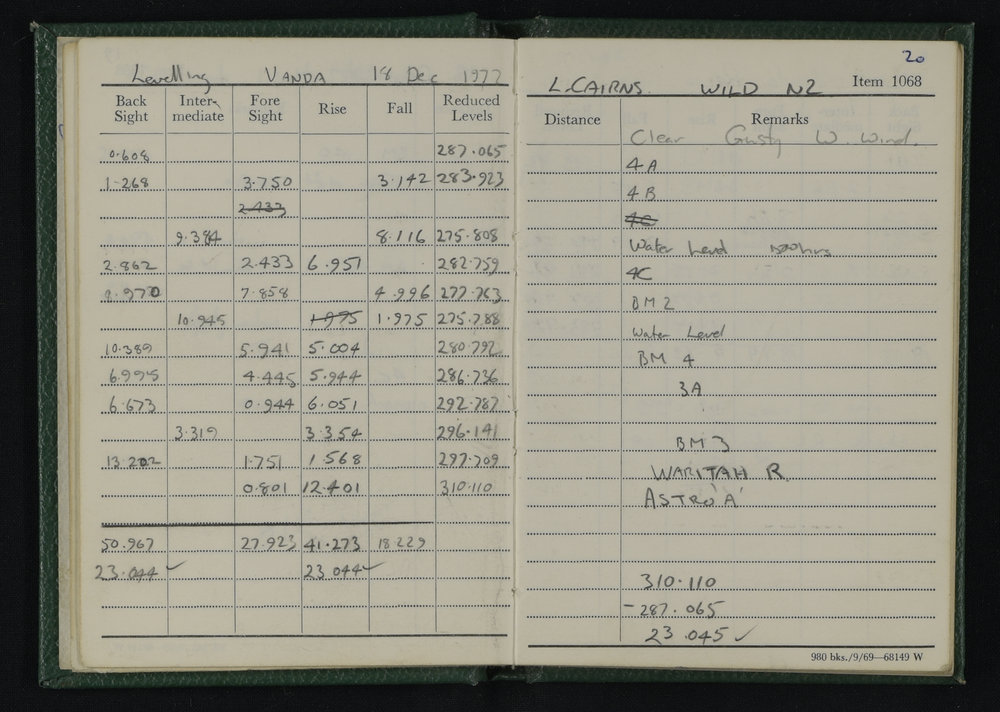 Levelling VANDA 18 Dec 1972
Back Sight Inter-mediate Fore Sight Rise Fall Reduced Levels
0.608 287.065
1.268 3.750 3.142 283.923
2.433
9.384 8.116 275.808
2.862 2.433 6.951 282.759
8.970 7.858 4.996 277.763
10.945 1.975 1.975 275.788
10.389 5.941 5.004 280.792
6.995 4.445 5.944 286.736
6.673 0.944 6.051 292.787
3.319 3.354 296.141
13.202 1.751 1.568 297.709
0.801 12.401 310.110
50.967 27.923 41.273 18.229
23.044 ✓ 23.044 ✓
20
L.CAIRNS. WILD N2 Item 1068
Distance Remarks
Clear Gusty W. Wind.
4A
4B
4C
Water Level
4C
BM 2
Water Level
BM 4
3A
BM 3
WARITAH R.
ASTRO A'
310.110
-287.065
23.045 ✓
980 bks./9/69—68149 W